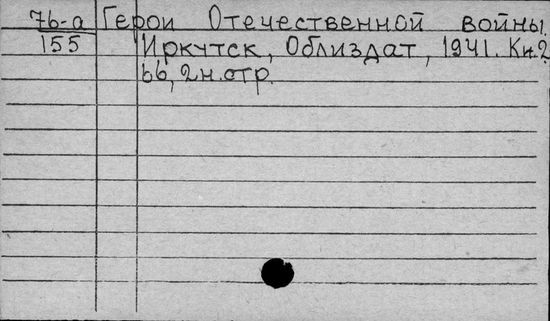 76-а Герои Отечественной войны.
155 Иркутск, Облиздат, 1941. Кн.2
66, 2 н. стр.